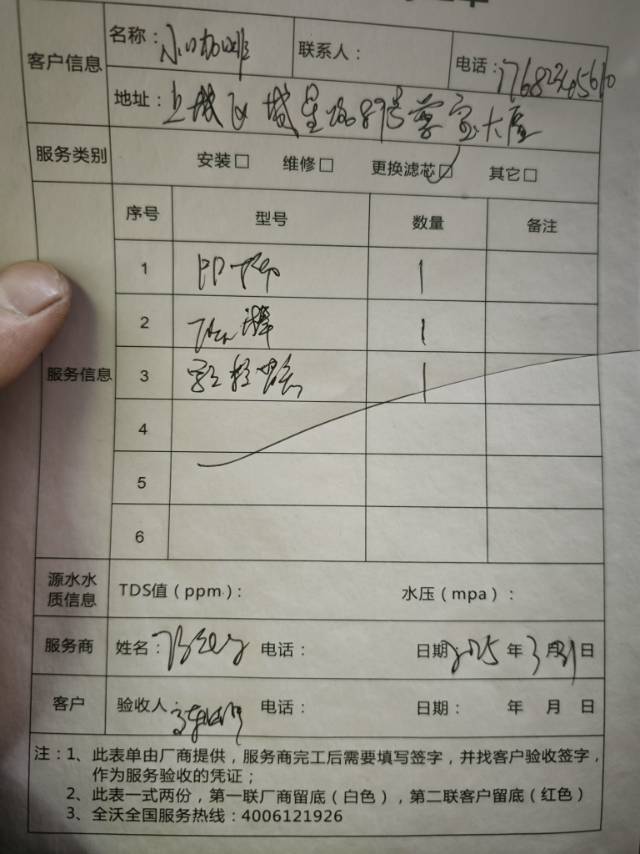 客户信息
名称：小口咖啡 联系人： 电话：17682345610
地址：上城区 城星路89号尊宝大厦
服务类别 安装□ 维修□ 更换滤芯□ 其它□
服务信息
序号 型号 数量 备注
1 PP棉 1
2 1
3 1
4
5
6
源水水
质信息
TDS值（ppm）： 水压（mpa）：
服务商 姓名： 电话： 日期 2025 年 3 月 31 日
客户 验收人： 电话： 日期： 年 月 日
注：1、此表单由厂商提供，服务商完工后需要填写签字，并找客户验收签字，
作为服务验收的凭证；
2、此表一式两份，第一联厂商留底（白色），第二联客户留底（红色）
3、全沃全国服务热线：4006121926